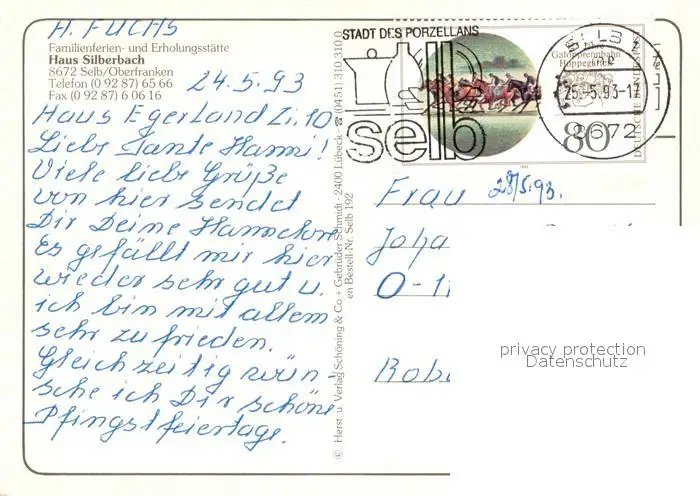 H. FUCHS
Familienferien- und Erholungsstätte
Haus Silberbach
8672 Selb/Oberfranken
Telefon (0 92 87) 65 66
Fax (0 92 87) 6 06 16
24.5.93
Haus Egerland Zi. 10
Liebe Tante Hanni!
Viele liebe Grüße
von hier sendet
Dir Deine Hannelore
Es gefällt mir hier
wieder sehr gut u.
ich bin mit allem
sehr zu frieden.
Gleichzeitig wün-
sche ich Dir schöne
Pfingstfeiertage.
© Herst. u. Verlag Schöning & Co + Gebrüder Schmidt · 2400 Lübeck · ☎ (0451) 310 310 0
en Bestell-Nr. Selb 192
STADT DES PORZELLANS
selb
Jahre
Galopprennbahn
Hoppegarten
80
DEUTSCHE BUNDESPOST
SELB
25.-5.93-17
8672
Frau
28/5.93.
Joha
O-1
Robe
privacy protection
Datenschutz